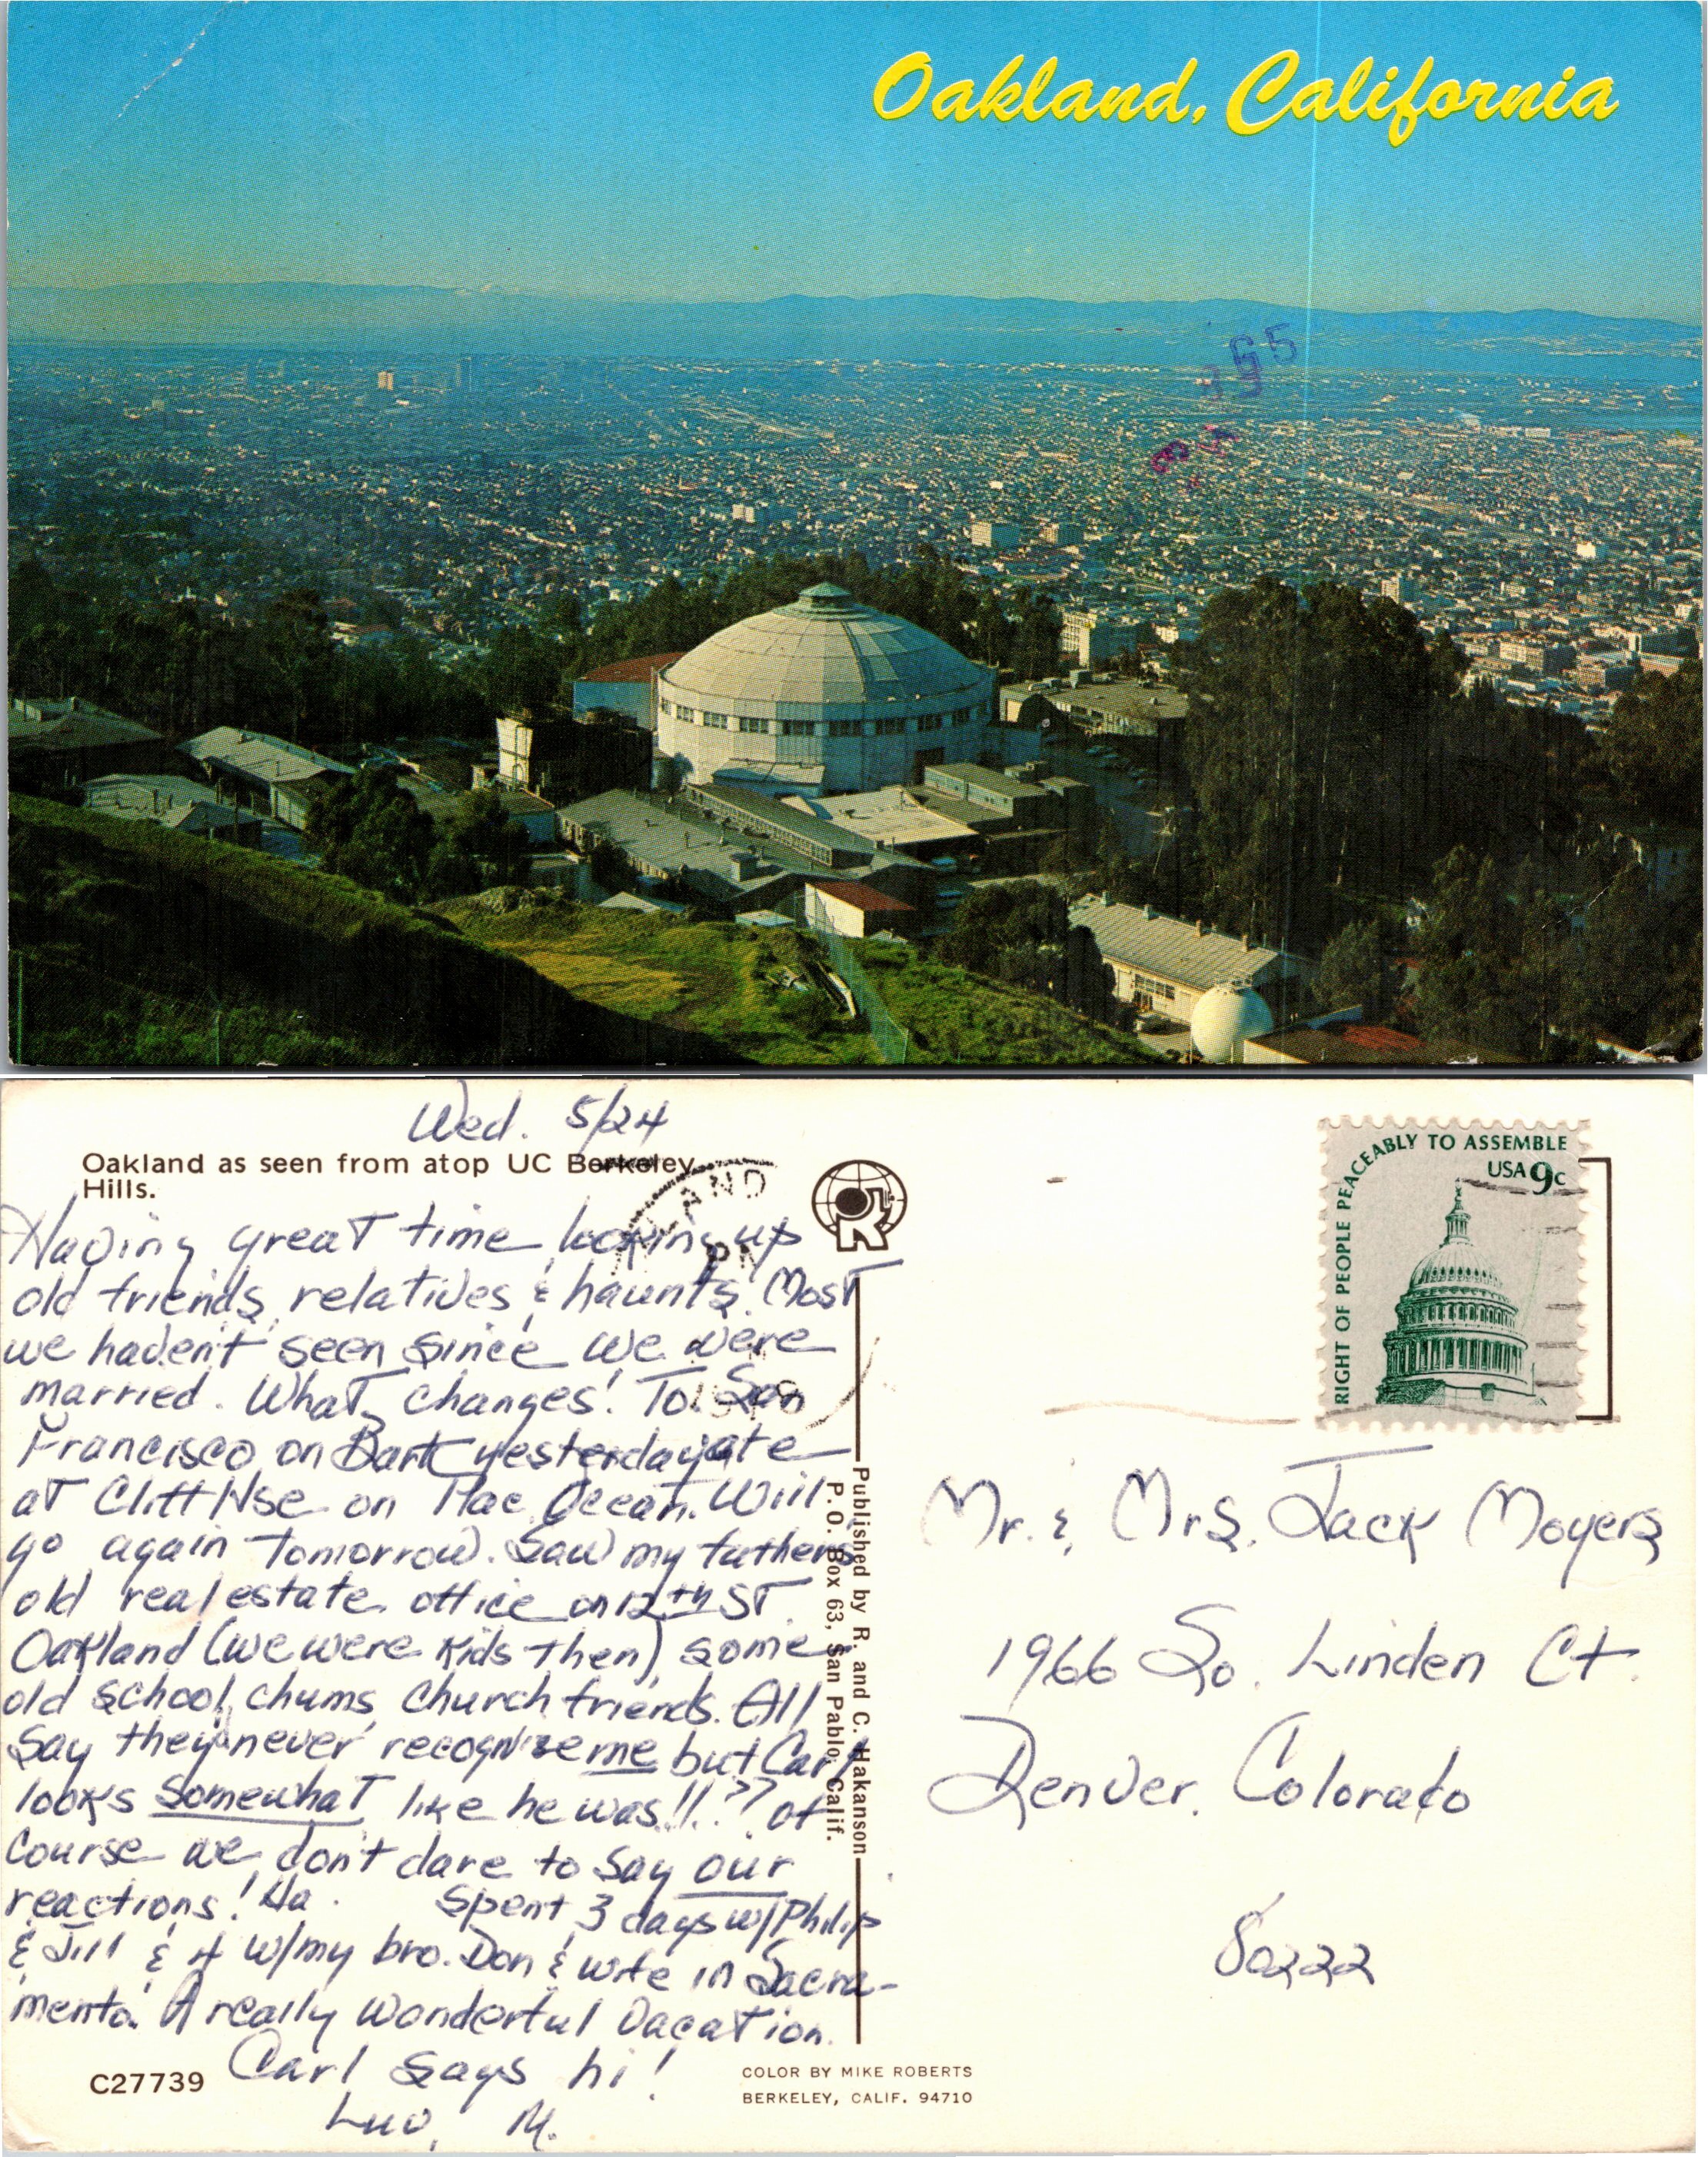 Oakland, California
Wed. 5/24
Oakland as seen from atop UC Berkeley
Hills.
Having great time looking up
old friends, relatives & haunts. Most
we haden't seen since we were
married. What changes! To San
Francisco on Bart yesterday, ate
at Cliff Hse on the Ocean. Will
go again Tomorrow. Saw my fathers
old real estate office on 12th ST.
Oakland (we were kids then) some
old school chums, church friends. All
say they never recognize me but Carl
looks somewhat like he was!!?? Of
course we don't dare to say our
reactions! Ha. Spent 3 days w/ Philip
& Jill & 4 w/my bro. Don & wife in Sacra-
mento. A really wonderful vacation.
Carl says hi!
Luv, M.
C27739
Published by R. and C. Hakanson
P.O. Box 63, San Pablo, Calif.
COLOR BY MIKE ROBERTS
BERKELEY, CALIF. 94710
LAND
PM
RIGHT OF PEOPLE PEACEABLY TO ASSEMBLE
USA 9c
Mr. & Mrs. Jack Moyers
1966 So. Linden Ct.
Denver, Colorado
80222